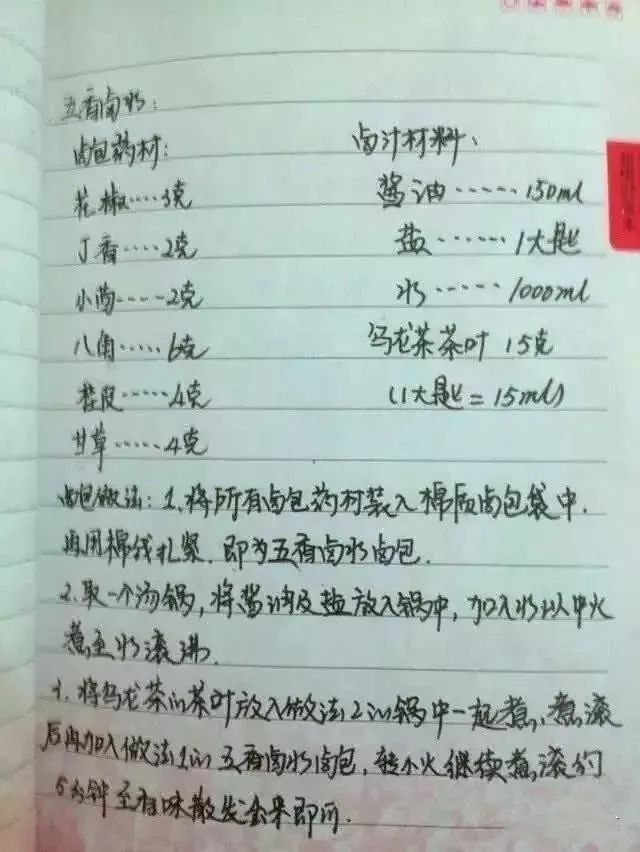 五香卤水:
卤包药材: 卤汁材料:
花椒····3克 酱油······150ml
丁香····2克 盐······1大匙
小茴····2克 水·····1000ml
八角·····6克 乌龙茶茶叶 15克
桂皮·····4克 (1大匙=15ml)
甘草·····4克
卤包做法:1、将所有卤包药材装入棉质卤包袋中.
再用棉线扎紧.即为五香卤水卤包.
2、取一个汤锅,将酱油及盐放入锅中,加入水以中火
煮至水滚沸.
3、将乌龙茶的茶叶放入做法2的锅中一起煮、煮滚
后再加入做法1的五香卤水卤包,转小火继续煮滚约
5分钟至香味散发出来即可.